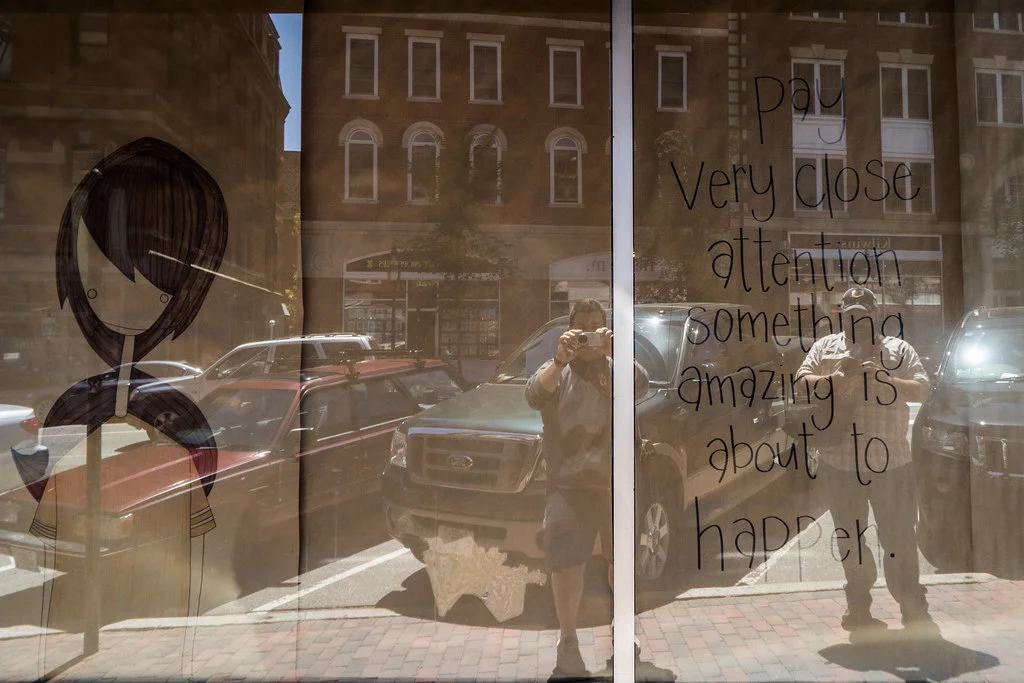 pay
very close
attention
something
amazing is
about to
happen.
Kilwins
Ford